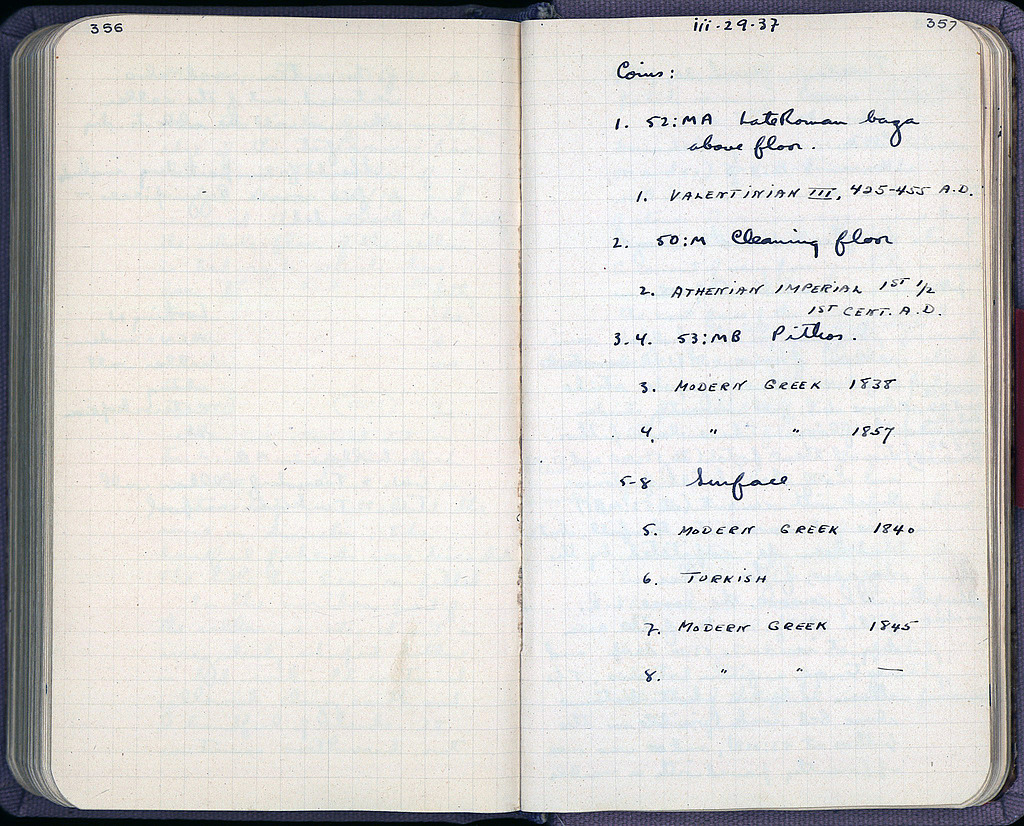 356
iii-29-37
357
Coins:
1. 52:MA Late Roman baga
above floor.
1. VALENTINIAN III, 425-455 A.D.
2. 50:M Cleaning floor
2. ATHENIAN IMPERIAL 1ST 1/2
1ST CENT. A.D.
3.4. 53:MB Pithos.
3. MODERN GREEK 1838
4. " " 1857
5-8 Surface
5. MODERN GREEK 1840
6. TURKISH
7. MODERN GREEK 1845
8. " " —